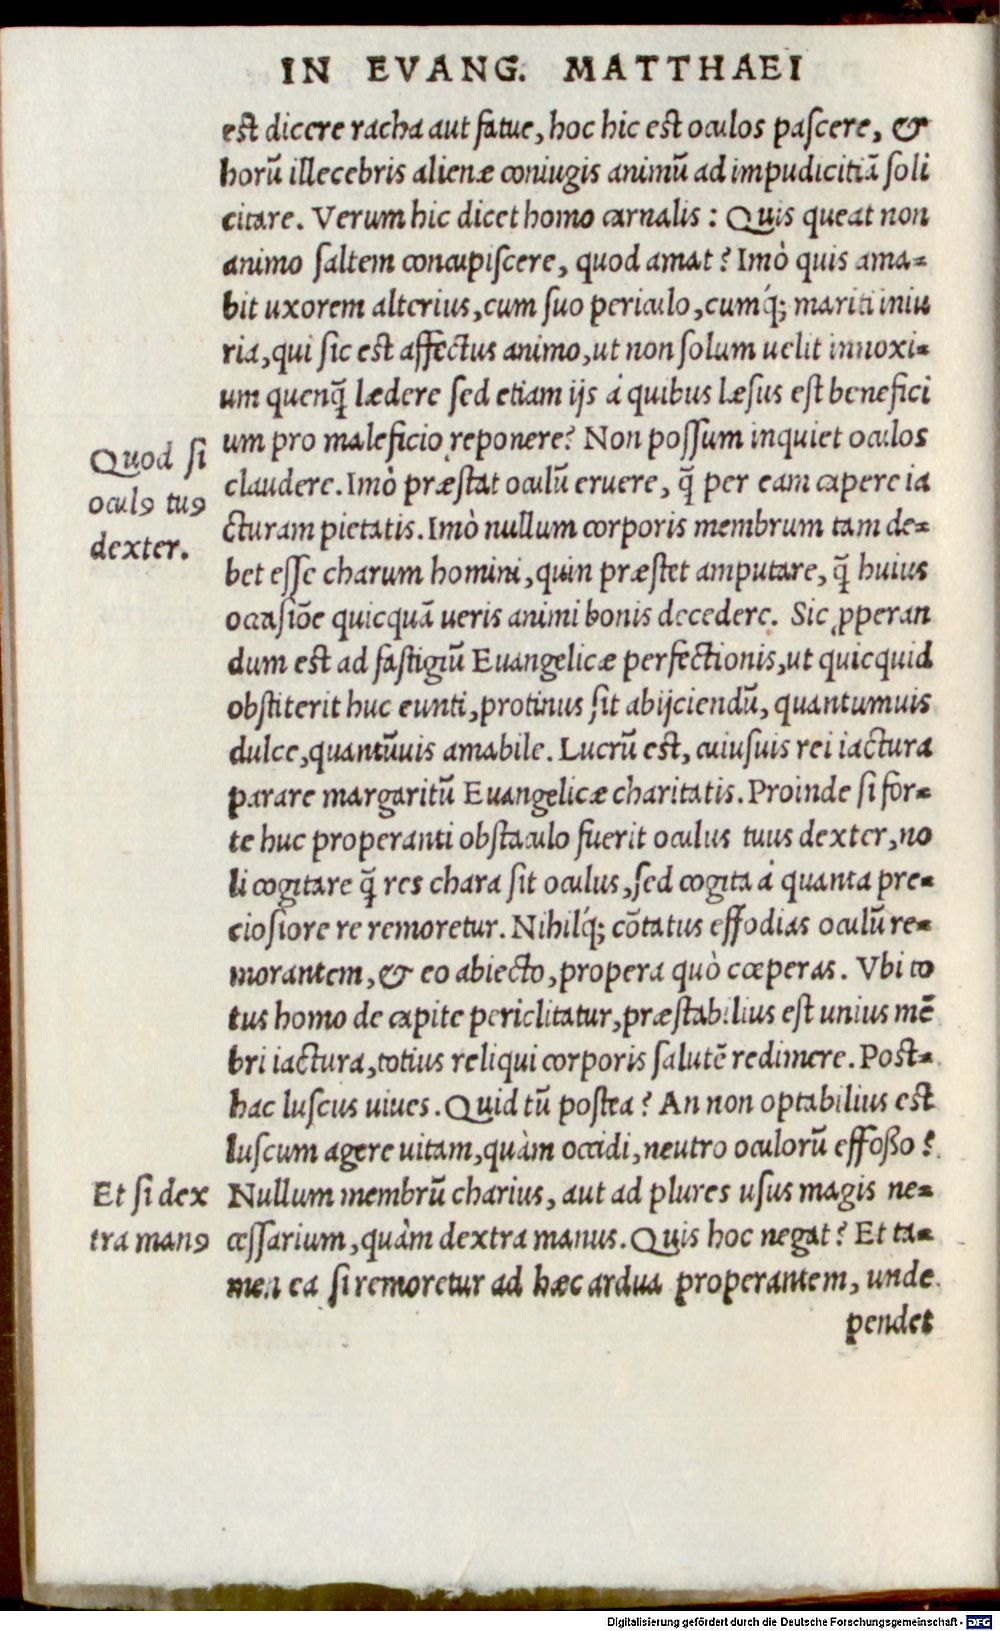 IN EVANG. MATTHAEI
est dicere racha aut fatue, hoc hic est oculos pascere, &
horū illecebris alienæ coniugis animū ad impudicitiā soli
citare. Verum hic dicet homo carnalis : Quis queat non
animo saltem concupiscere, quod amat? Imò quis ama-
bit uxorem alterius, cum suo periculo, cumq́; mariti iniu
ria, qui sic est affectus animo, ut non solum uelit innoxi-
um quenq̄ lædere sed etiam ijs á quibus læsus est benefici
um pro maleficio reponere? Non possum inquiet oculos
Quod si
oculꝰ tuꝰ
dexter.
claudere. Imò præstat oculū eruere, q̄ per eam capere ia
cturam pietatis. Imò nullum corporis membrum tam de-
bet esse charum homini, quin præstet amputare, q̄ huius
occasiōe quicquā ueris animi bonis decedere. Sic ꝓperan
dum est ad fastigiū Euangelicæ perfectionis, ut quicquid
obstiterit huc eunti, protinus sit abijciendū, quantumuis
dulce, quantūuis amabile. Lucrū est, cuiusuis rei iactura
parare margaritū Euangelicæ charitatis. Proinde si for-
te huc properanti obstaculo fuerit oculus tuus dexter, no
li cogitare q̄ res chara sit oculus, sed cogita á quanta pre-
ciosiore re remoretur. Nihilq́; cōtatus effodias oculū re-
morantem, & eo abiecto, propera quò cœperas. Vbi to
tus homo de capite periclitatur, præstabilius est unius mē
bri iactura, totius reliqui corporis salutē redimere. Post-
hac luscus uiues. Quid tū postea? An non optabilius est
luscum agere uitam, quàm occidi, neutro oculorū effosso?
Et si dex
tra manꝰ
Nullum membrū charius, aut ad plures usus magis ne-
cessarium, quàm dextra manus. Quis hoc negat? Et ta-
men ea si remoretur ad hæc ardua properantem, unde
pendet
Digitalisierung gefördert durch die Deutsche Forschungsgemeinschaft - DFG